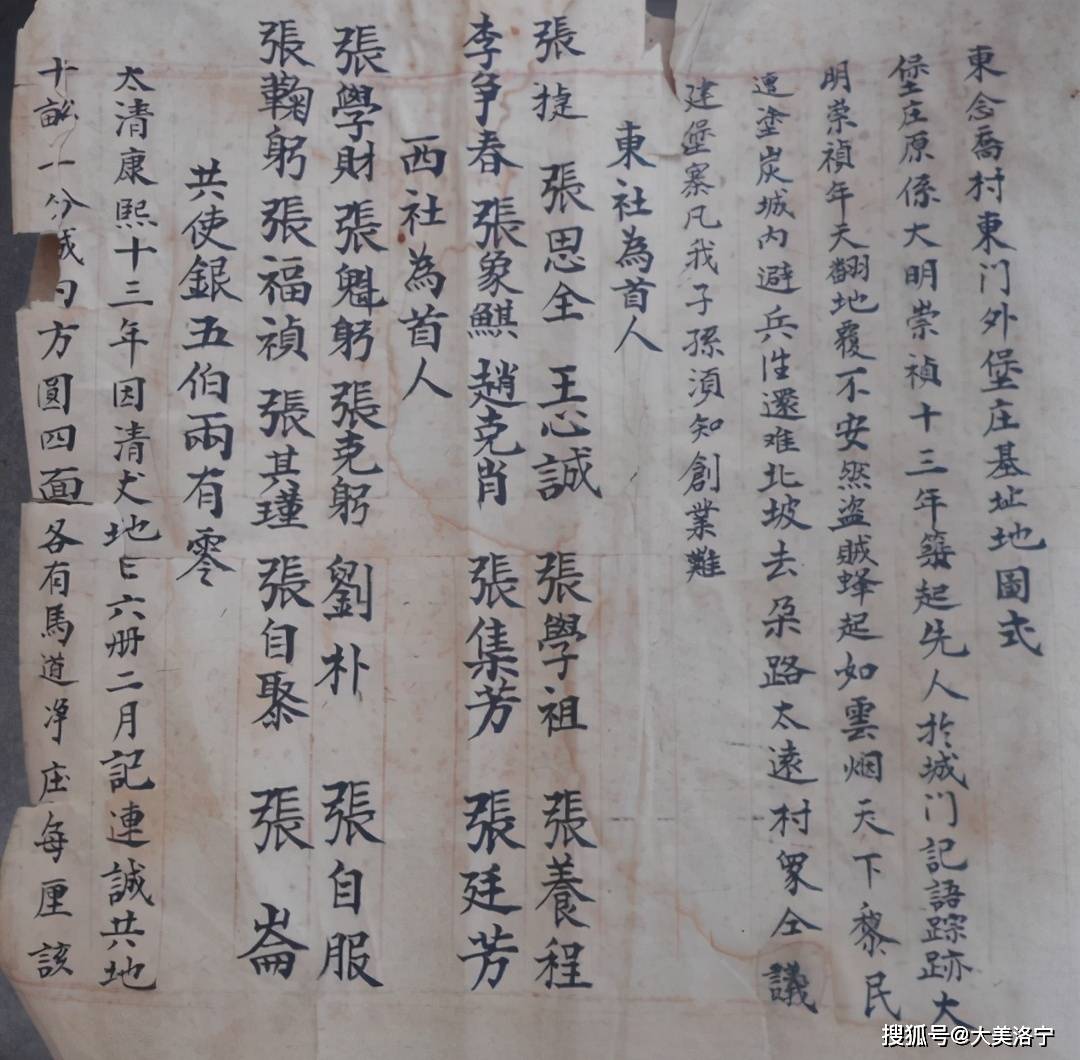 東念喬村東门外堡庄基址地圖式
堡庄原係大明崇禎十三年築起先人扵城门記語踪跡大
明崇禎年天翻地覆不安然盗賊蜂起如雲烟天下黎民
遭塗炭城内避兵往還难北坡去朶路太遠村衆仝議
建堡寨凡我子孫須知創業難
東社為首人
張捷 張思全 王心誠 張學祖 張養程
李争春 張象鯕 趙克肖 張集芳 張廷芳
西社為首人
張學財 張魁躬 張克躬 劉朴 張自服
張鞠躬 張福禎 張其瑾 張自聚 張崙
共使銀五伯兩有零
太清康熙十三年因清丈地亡六册二月記連誠共地
十畝一分 内方圓四面各有馬道净庄每厘該
搜狐号@大美洛宁